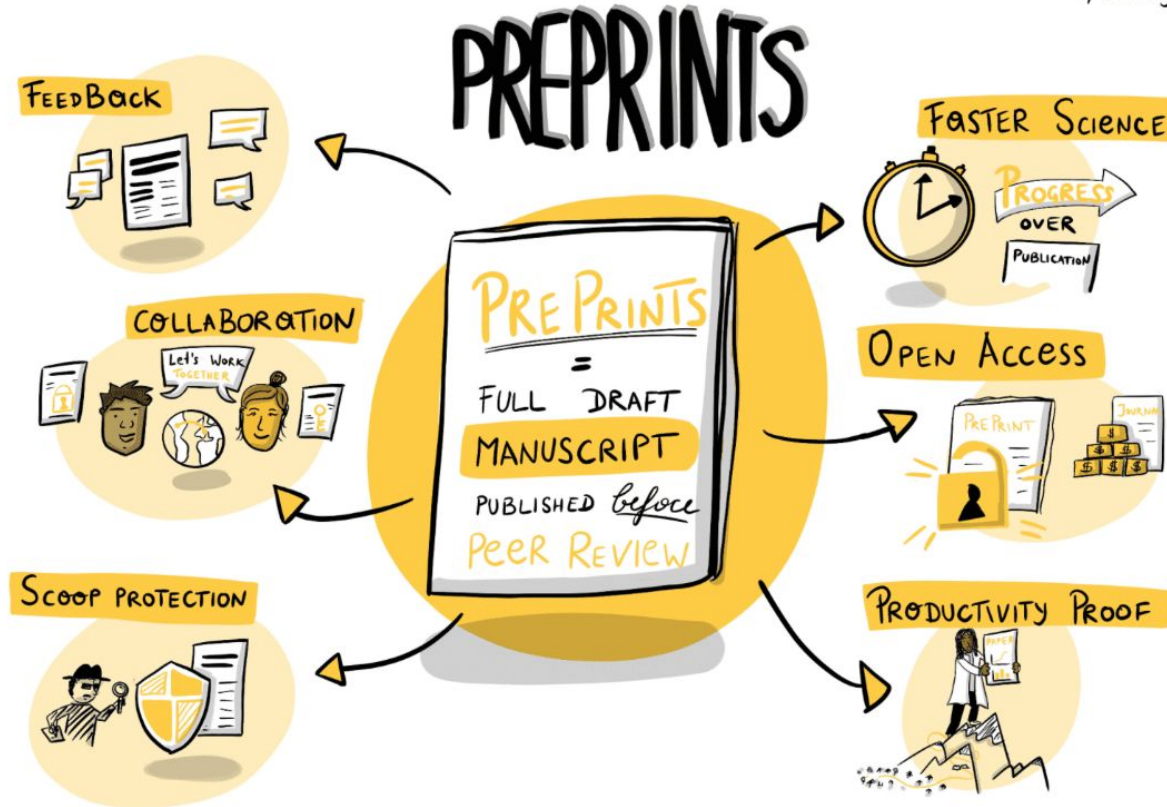 PREPRINTS
FEEDBACK
COLLABORATION
Let's WORK
TOGETHER
SCOOP PROTECTION
PREPRINTS
=
FULL DRAFT
MANUSCRIPT
PUBLISHED before
PEER REVIEW
FASTER SCIENCE
PROGRESS
OVER
PUBLICATION
OPEN ACCESS
PREPRINT
JOURNA
$
$ $
$ $ $
PRODUCTIVITY PROOF
PAPER